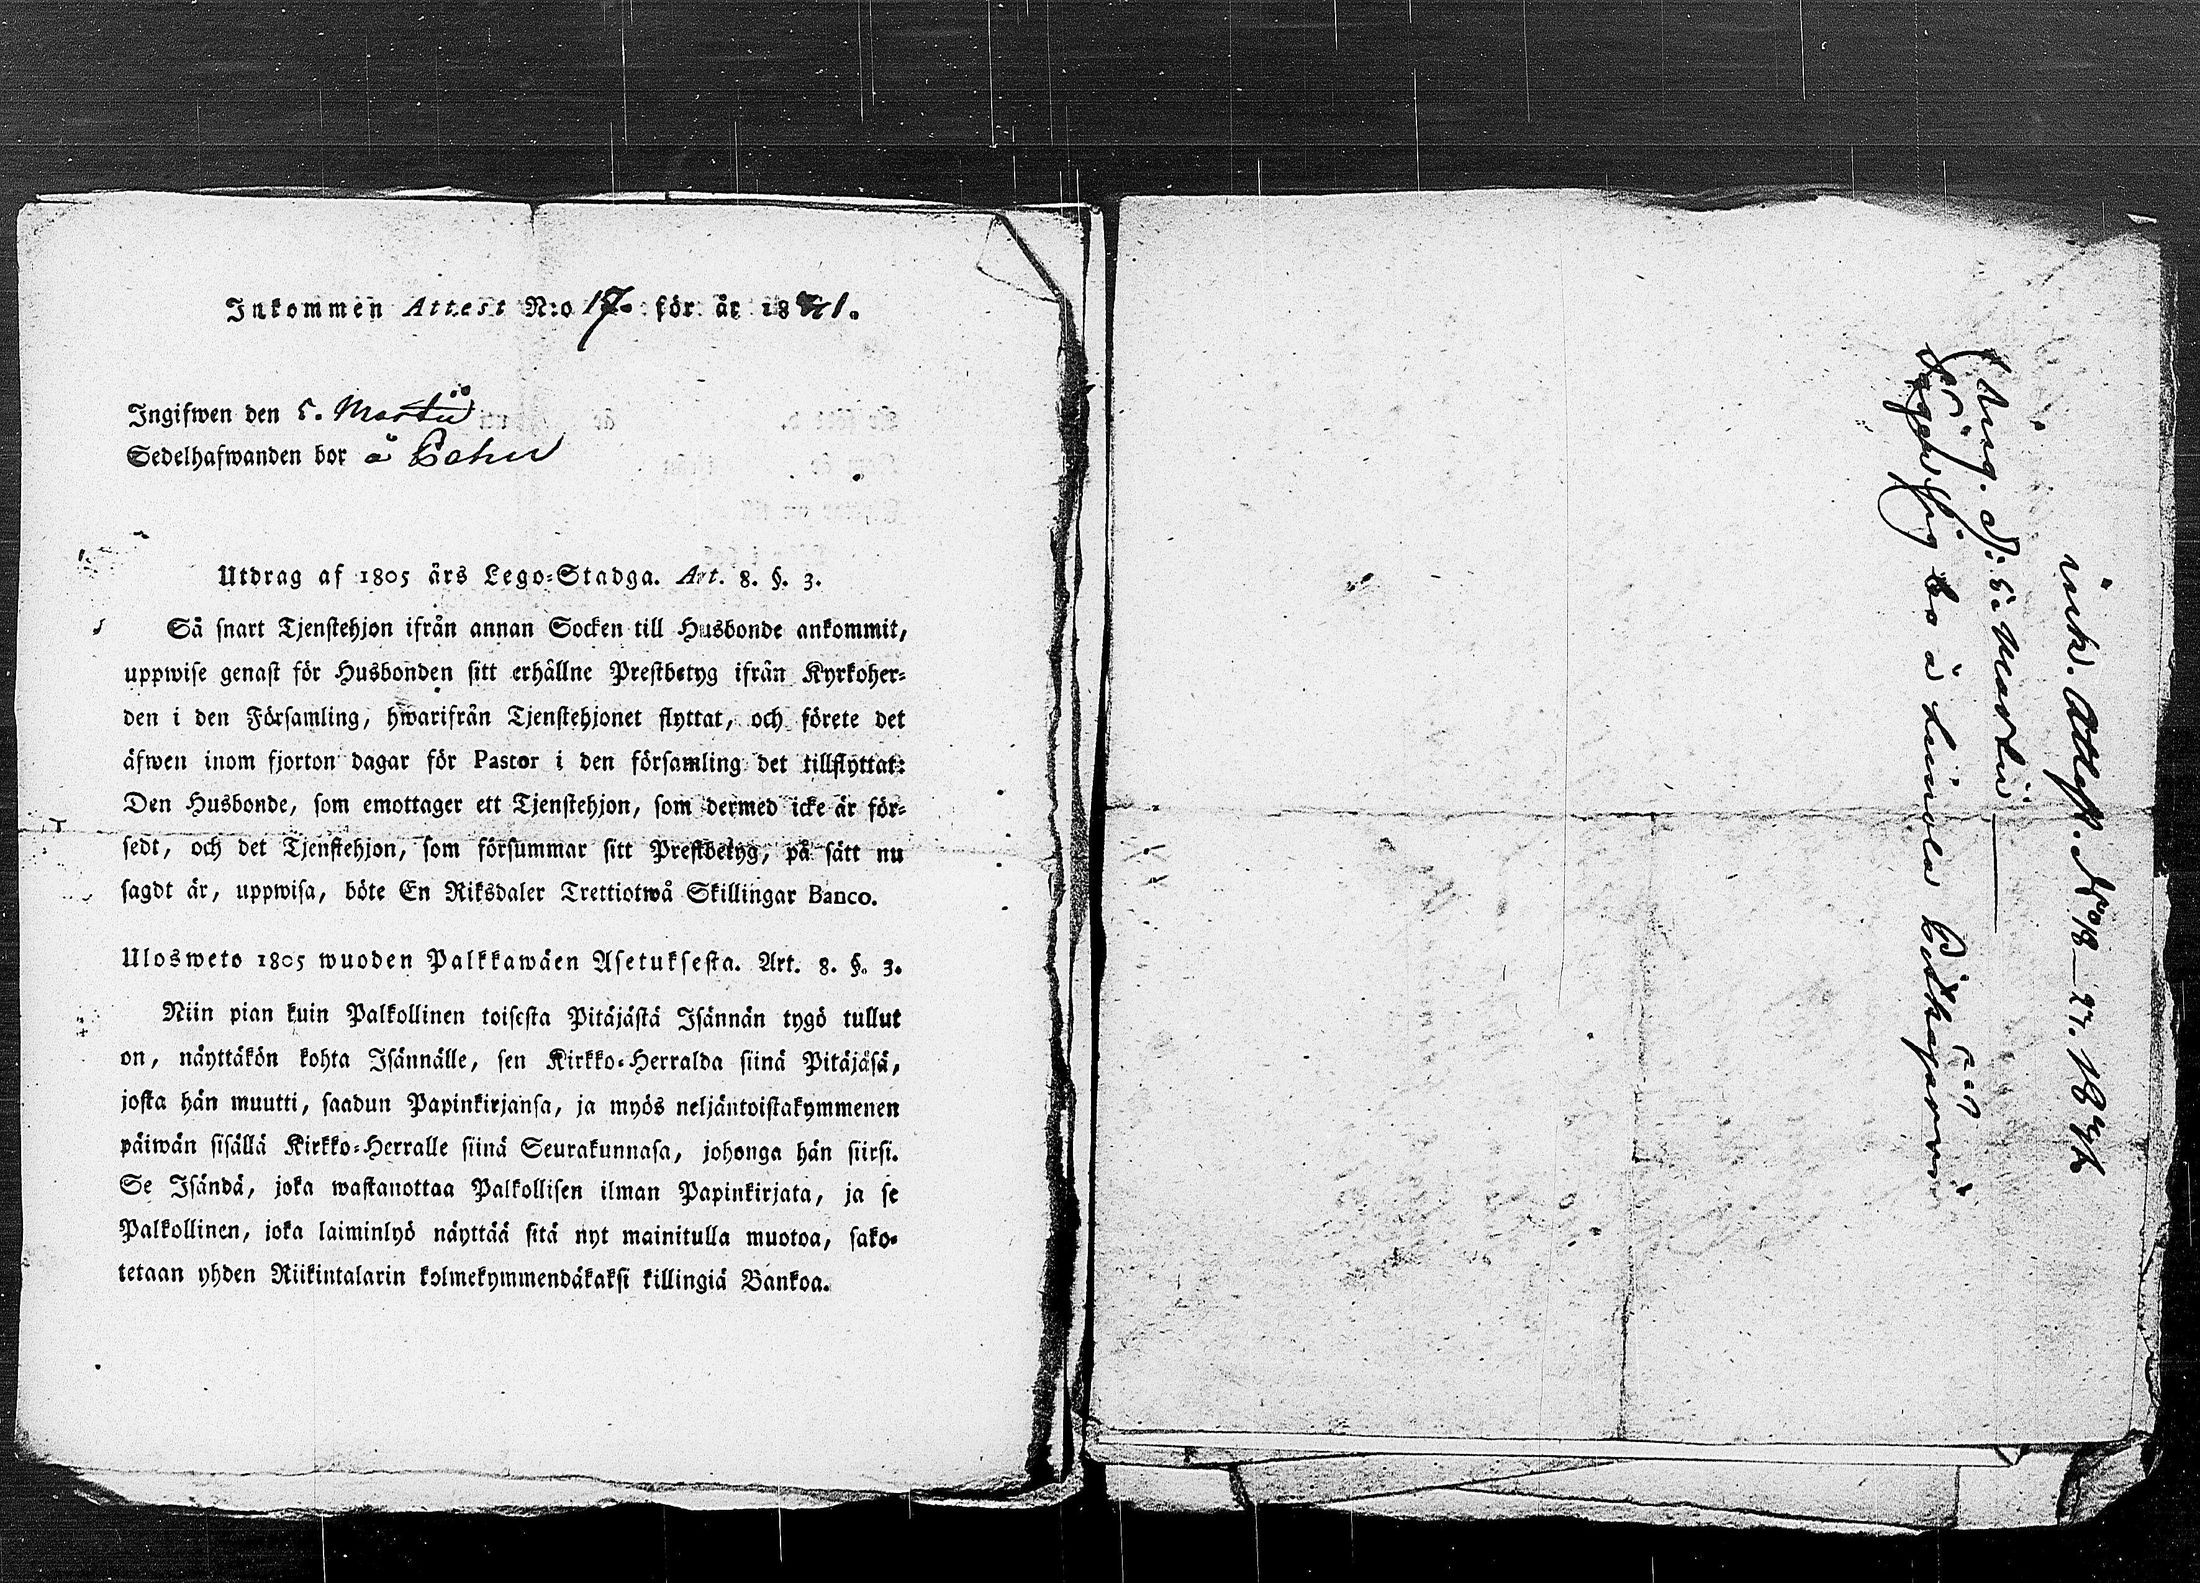 Inkommen Attest N:o 17. för år 1841.
Ingifwen den 5. Martii
Sedelhafwanden bor å
Utdrag af 1805 års Lego=Stadga. Art. 8. §. 3.
Så snart Tjenstehjon ifrån annan Socken till Husbonde ankommit,
uppwise genast för Husbonden sitt erhållne Prestbetyg ifrån Kyrkoher=
den i den Församling, hwarifrån Tjenstehjonet flyttat, och förete det
äfwen inom fjorton dagar för Pastor i den församling det tillflyttat:
Den Husbonde, som emottager ett Tjenstehjon, som dermed icke är för=
sedt, och det Tjenstehjon, som försummar sitt Prestbetyg, på sätt nu
sagdt är, uppwisa, böte En Riksdaler Trettiotwå Skillingar Banco.
Ulosweto 1805 wuoden Palkkawäen Asetuksesta. Art. 8. §. 3.
Niin pian kuin Palkollinen toisesta Pitäjästä Isännän tygö tullut
on, näyttäkön kohta Isännälle, sen Kirkko=Herralda siinä Pitäjäsä,
josta hän muutti, saadun Papinkirjansa, ja myös neljäntoistakymmenen
päiwän sisällä Kirkko=Herralle siinä Seurakunnasa, johonga hän siirsi.
Se Isändä, joka wastanottaa Palkollisen ilman Papinkirjata, ja se
Palkollinen, joka laiminlyö näyttää sitä nyt mainitulla muotoa, sako=
tetaan yhden Riikintalarin kolmekymmendäkaksi killingiä Bankoa.
ink. Att. N:o 18 1841
Ing. d. 5. Martii
bo å